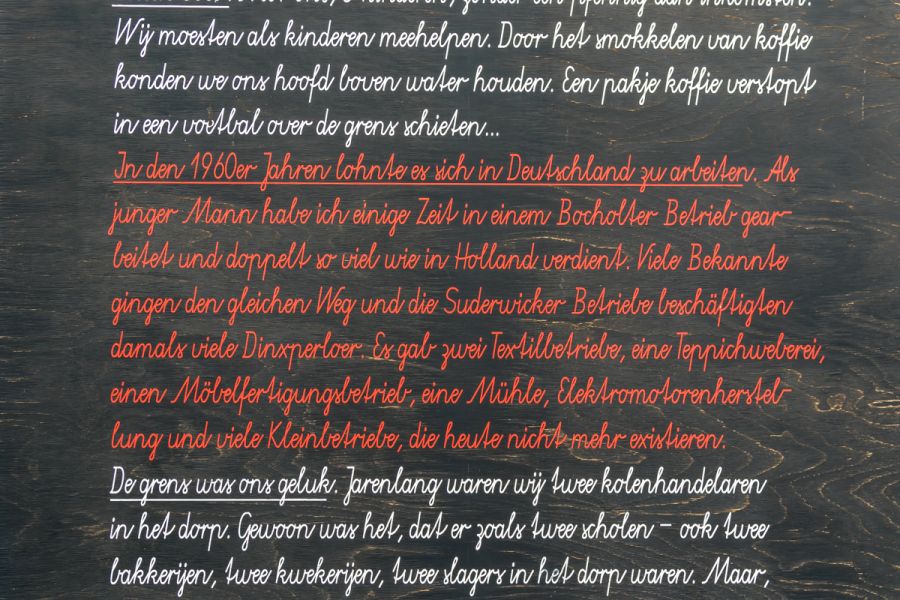 zonder een pfennig aan inkomsten.
Wij moesten als kinderen meehelpen. Door het smokkelen van koffie
konden we ons hoofd boven water houden. Een pakje koffie verstopt
in een voetbal over de grens schieten...
In den 1960er Jahren lohnte es sich in Deutschland zu arbeiten. Als
junger Mann habe ich einige Zeit in einem Bocholter Betrieb gear-
beitet und doppelt so viel wie in Holland verdient. Viele Bekannte
gingen den gleichen Weg und die Suderwicker Betriebe beschäftigten
damals viele Dinxperloer. Es gab zwei Textilbetriebe, eine Teppichweberei,
einen Möbelfertigungsbetrieb, eine Mühle, Elektromotorenherstel-
lung und viele Kleinbetriebe, die heute nicht mehr existieren.
De grens was ons geluk. Jarenlang waren wij twee kolenhandelaren
in het dorp. Gewoon was het, dat er zoals twee scholen – ook twee
bakkerijen, twee kwekerijen, twee slagers in het dorp waren. Maar,